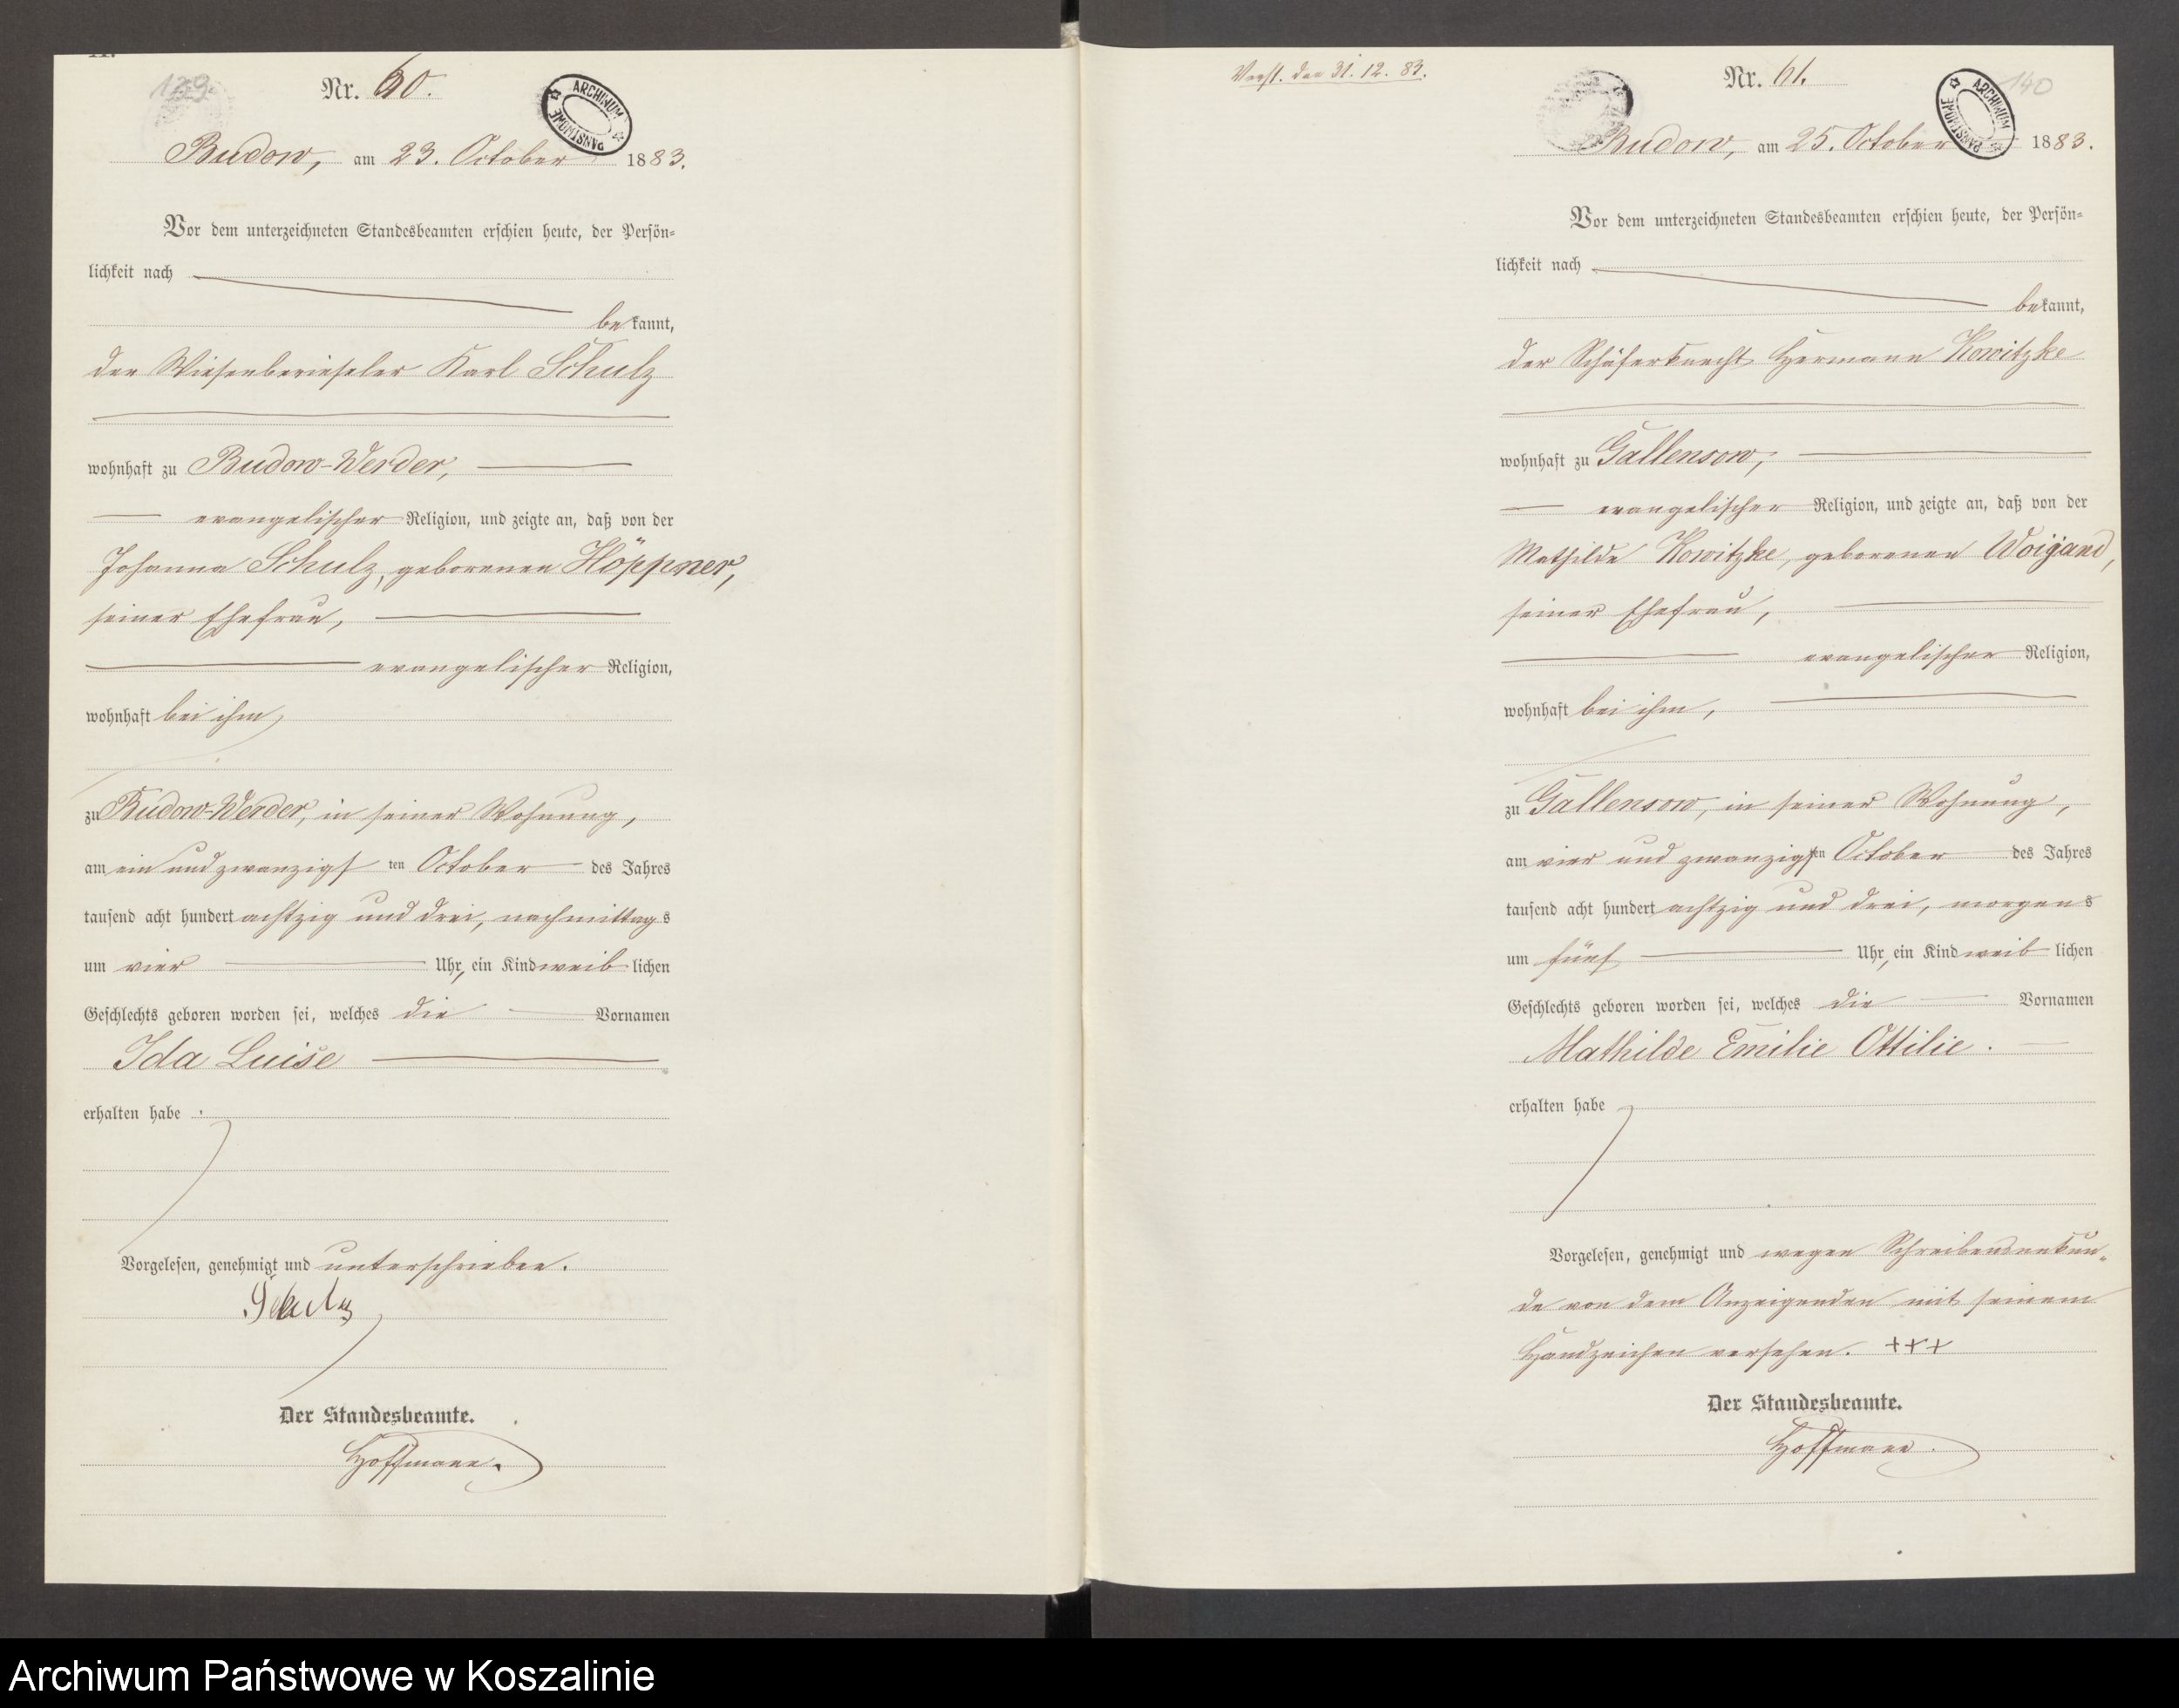 139.
Nr. 60.
ARCHIWUM PAŃSTWOWE
Budow, am 23. October 1883.
Vor dem unterzeichneten Standesbeamten erschien heute, der Persön=
lichkeit nach
bekannt,
der Wiesenberieseler Karl Schulz
wohnhaft zu Budow-Werder,
evangelischer Religion, und zeigte an, daß von der
Johanna Schulz, geborenen Höppner,
seiner Ehefrau,
evangelischer Religion,
wohnhaft bei ihm,
zu Budow-Werder, in seiner Wohnung,
am ein und zwanzigsten October des Jahres
tausend acht hundert achtzig und drei, nachmittags
um vier Uhr, ein Kind weiblichen
Geschlechts geboren worden sei, welches die Vornamen
Ida Luise
erhalten habe.
Vorgelesen, genehmigt und unterschrieben.
Schulz
Der Standesbeamte.
Hoffmann.
Verst. den 31. 12. 83.
Nr. 61.
140
ARCHIWUM PAŃSTWOWE
Budow, am 25. October 1883.
Vor dem unterzeichneten Standesbeamten erschien heute, der Persön=
lichkeit nach
bekannt,
der Schäferknecht Hermann Kowitzke
wohnhaft zu Gallensow,
evangelischer Religion, und zeigte an, daß von der
Mathilde Kowitzke, geborenen Woigand,
seiner Ehefrau,
evangelischer Religion,
wohnhaft bei ihm,
zu Gallensow, in seiner Wohnung,
am vier und zwanzigsten October des Jahres
tausend acht hundert achtzig und drei, morgens
um fünf Uhr, ein Kind weiblichen
Geschlechts geboren worden sei, welches die Vornamen
Mathilde Emilie Ottilie.
erhalten habe
Vorgelesen, genehmigt und wegen Schreibensunkun=
de von dem Anzeigenden mit seinem
Handzeichen versehen. +++
Der Standesbeamte.
Hoffmann.
Archiwum Państwowe w Koszalinie